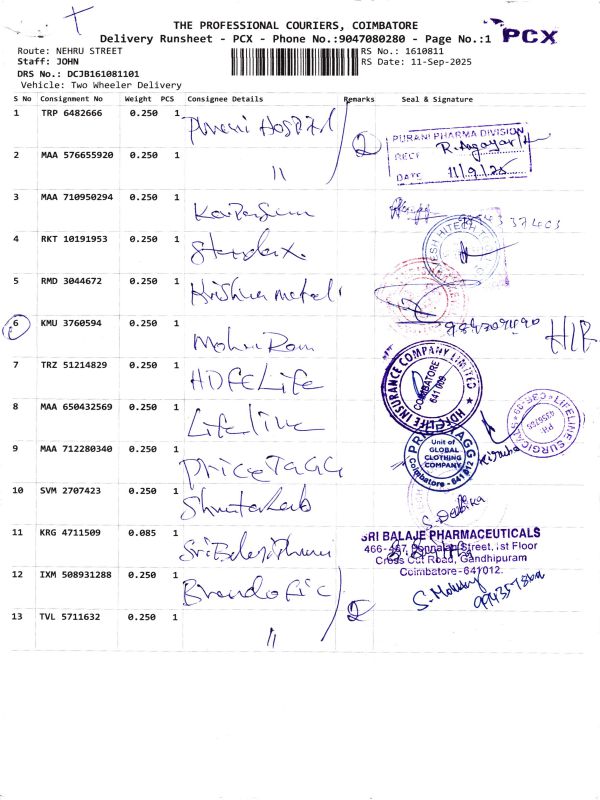 THE PROFESSIONAL COURIERS, COIMBATORE
Delivery Runsheet - PCX - Phone No.:9047080280 - Page No.:1 PCX
Route: NEHRU STREET RS No.: 1610811
Staff: JOHN RS Date: 11-Sep-2025
DRS No.: DCJB161081101
Vehicle: Two Wheeler Delivery
S No Consignment No Weight PCS Consignee Details Remarks Seal & Signature
1 TRP 6482666 0.250 1 Purani Hospital
PURANI PHARMA DIVISION
RECT
DATE 11/9/25
2 MAA 576655920 0.250 1 11
3 MAA 710950294 0.250 1
4 RKT 10191953 0.250 1
5 RMD 3044672 0.250 1 Krishna metal
6 KMU 3760594 0.250 1 Mohan Ram
7 TRZ 51214829 0.250 1 HDFC Life
HDFC LIFE INSURANCE COMPANY LIMITED
COIMBATORE
641 009
8 MAA 650432569 0.250 1 Lifeline
LIFELINE SURGICAL
9 MAA 712280340 0.250 1 PRICE TAGG
Unit of
GLOBAL
CLOTHING
COMPANY
Coimbatore - 641 012
10 SVM 2707423 0.250 1
11 KRG 4711509 0.085 1
SRI BALAJE PHARMACEUTICALS
466-467, Ponnaian Street, Ist Floor
Cross Cut Road, Gandhipuram
Coimbatore-641012.
12 IXM 508931288 0.250 1
13 TVL 5711632 0.250 1 11